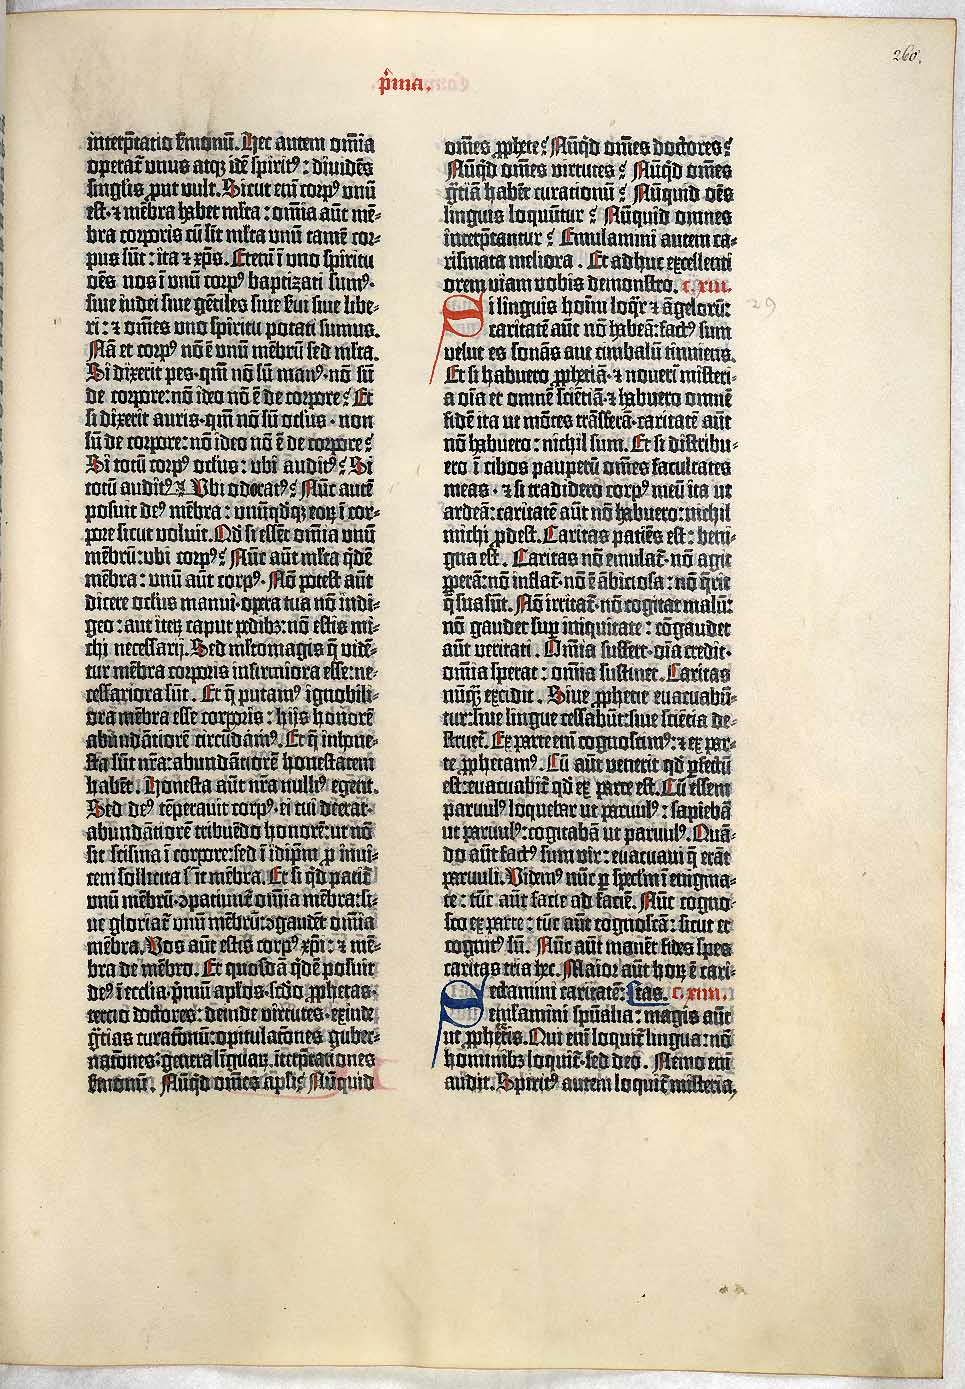 260.
p̃ma.
interp̄tatio ẜmonū. Hec autem om̄ia
operat̄ unus atq; idē spirit⁹: diuidēs
singl̄is ꝓut vult. Sicut eni corp⁹ unū
est · ⁊ mēbra habet ml̄ta: om̄ia aūt mē-
bra corporis cū sīt ml̄ta unū tamē cor-
pus sūt: ita ⁊ xp̄s. Etenī ī uno spiritu
oēs nos ī unū corp⁹ baptizati sum⁹·
siue iudei siue gētiles siue ẜui siue libe-
ri: ⁊ om̄es uno spiritu potati sumus.
Nā et corp⁹ nō ē unū mēbrū sed ml̄ta.
Si dixerit pes · qm̄ nō sū man⁹ · nō sū
de corpore: nō ideo nō ē de corpore? Et
si dixerit auris · qm̄ nō sū ocl̄us · non
sū de corpore: nō ideo nō ē de corpore?
Si totū corp⁹ ocl̄us: ubi audit⁹? Si
totū audit⁹? Ubi odorat⁹? Nūc autē
posuit de⁹ mēbra: unūq̄dq; eoꝝ ī cor-
pore sicut voluit. Qd̄ si essēt om̄ia unū
mēbrū: ubi corp⁹? Nūc aūt ml̄ta q̄dē
mēbra: unū aūt corp⁹. Nō potest aūt
dicere ocl̄us manui · opera tua nō indi-
geo: aut iteꝝ caput pedib;: nō estis mi-
chi necessarij. Sed ml̄tomagis q̄ vidē-
tur mēbra corporis infirmiora esse: ne-
cessariora sūt. Et q̄ putam⁹ ignobili-
ora mēbra esse corporis: hijs honorē
abundātiorē circūdam⁹. Et q̄ inhone-
sta sūt nr̄a: abundātiorē honestatem
habēt. Honesta aūt nr̄a nulli⁹ egent.
Sed de⁹ tēperauit corp⁹ · ei cui deerat ·
abundātiorē tribuēdo honorē: ut nō
sit scisma ī corpore: sed ī idip̄m ꝓ inui-
cem sollicita sīt mēbra. Et si q̄d patit̄
unū mēbrū · ꝯpatiunt̄ om̄ia mēbra: si-
ue gloriat̄ unū mēbrū: ꝯgaudēt om̄ia
mēbra. Vos aūt estis corp⁹ xp̄i: ⁊ mē-
bra de mēbro. Et quosdā q̄dē posuit
de⁹ ī eccl̄ia · p̄mū ap̄los · scd̄o ꝓphetas ·
tercio doctores: deinde virtutes · exinde
gr̄tias curatōnū: opitulatōnes guber-
natōnes · genera līguaꝝ · īterp̄tationes
ẜmonū. Nūq̄d om̄es ap̄li? Nūquid
om̄es ꝓphete? Nūq̄d om̄es doctores?
Nūq̄d om̄es virtutes? Nūq̄d om̄es
gr̄tiā habēt curationū? Nūquid oēs
linguis loquūtur? Nūquid omnes
interp̄tantur? Emulamini autem ca-
rismata meliora. Et adhuc excellenti
orem viam vobis demonstro. c. xiii.
Si linguis hoīm loq̄r ⁊ āgelorū: 29
caritatē aūt nō habeā: fact⁹ sum
velut es sonās aut cimbalū tinniens.
Et si habuero ꝓphetiā · ⁊ nouerī misteri-
a oīa et omnē sciētiā · ⁊ habuero omnē
fidē ita ut mōtes trāsferā · caritatē aūt
nō habuero: nichil sum. Et si distribu-
ero ī cibos pauperū om̄es facultates
meas · ⁊ si tradidero corp⁹ meū ita ut
ardeā: caritatē aūt nō habuero: nichil
michi ꝓdest. Caritas patiēs est: beni-
gna est. Caritas nō emulat̄ · nō agit
ꝑperā: nō inflat̄ · nō ē ābiciosa: nō q̄rit
q̄ sua sūt. Nō irritat̄ · nō cogitat malū:
nō gaudet suꝑ iniquitate: cōgaudet
aūt veritati. Omīa suffert · oīa credit ·
om̄ia sperat: om̄ia sustinet. Caritas
nūq̄ excidit. Siue ꝓphetie euacuabū-
tur: siue lingue cessabūt: siue sciētia de-
struet̄. Ex parte eni cognoscim⁹: ⁊ ex par-
te ꝓphetam⁹. Cū aūt venerit qd̄ ꝑfectū
est: euacuabit̄ qd̄ ex parte est. Cū essem
paruul⁹ loquebar ut paruul⁹: sapiebā
ut paruul⁹: cogitabā ut paruul⁹. Quā-
do aūt fact⁹ sum vir: euacuaui q̄ erāt
paruuli. Videm⁹ nūc ꝑ specl̄m ī enigma-
te: tūc aūt facie ad faciē. Nūc cogno-
sco ex parte: tūc aūt cognoscā: sicut et
cognit⁹ sū. Nūc aūt manēt fides spes
caritas tria hec. Maior aūt hoꝝ ē cari-
Sectamini caritatē: tas. c. xiiii.
emulamini spūalia: magis aūt
ut ꝓphetetis. Qui eni loquit̄ lingua: nō
hominib; loquit̄ · sed deo. Nemo eni
audit. Spirit⁹ autem loquit̄ misteria,